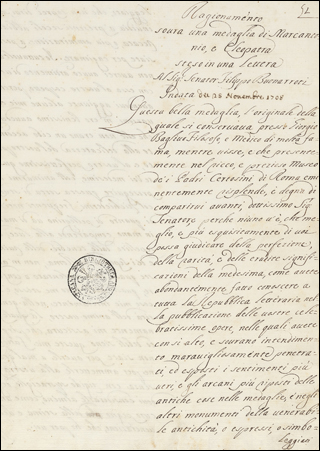 Ragionamento
soura una medaglia di Marcanto
nio, e Cleopatra
steso in una lettera
Al Sig. Senator Filippo Buonarroti
Inviata dei 28 Novembre 1708
Questa bella medaglia, l'originale della
quale si conservava presso Giorgio
Baglivi Filosofo, e Medico di molta fa
ma mentre visse, e che presente
mente nel ricco, e prezioso Museo
de' i Padri Certosini di Roma emi
nentemente risplende, è degna di
comparirvi avanti, dottissimo Sig.
Senatore, perche niuno v'è, che me
glio, e più esquisitamente di voi
possa giudicare della perfezione,
della rarità, e delle erudite signifi
cazioni della medesima, come avete
abondantemente fatto conoscere a
tutta la Republica Letteraria nel
la pubblicazione delle vostre cele
bratissime opere, nelle quali avete
con si alto, e sicuro intendimento
maravigliosamente penetra
ti, ed esposti i sentimenti più
veri, e gli arcani più riposti delle
antiche cose nelle medaglie, e negli
altri monumenti della venerabi
le antichità, o espressi, o simbo
leggiati